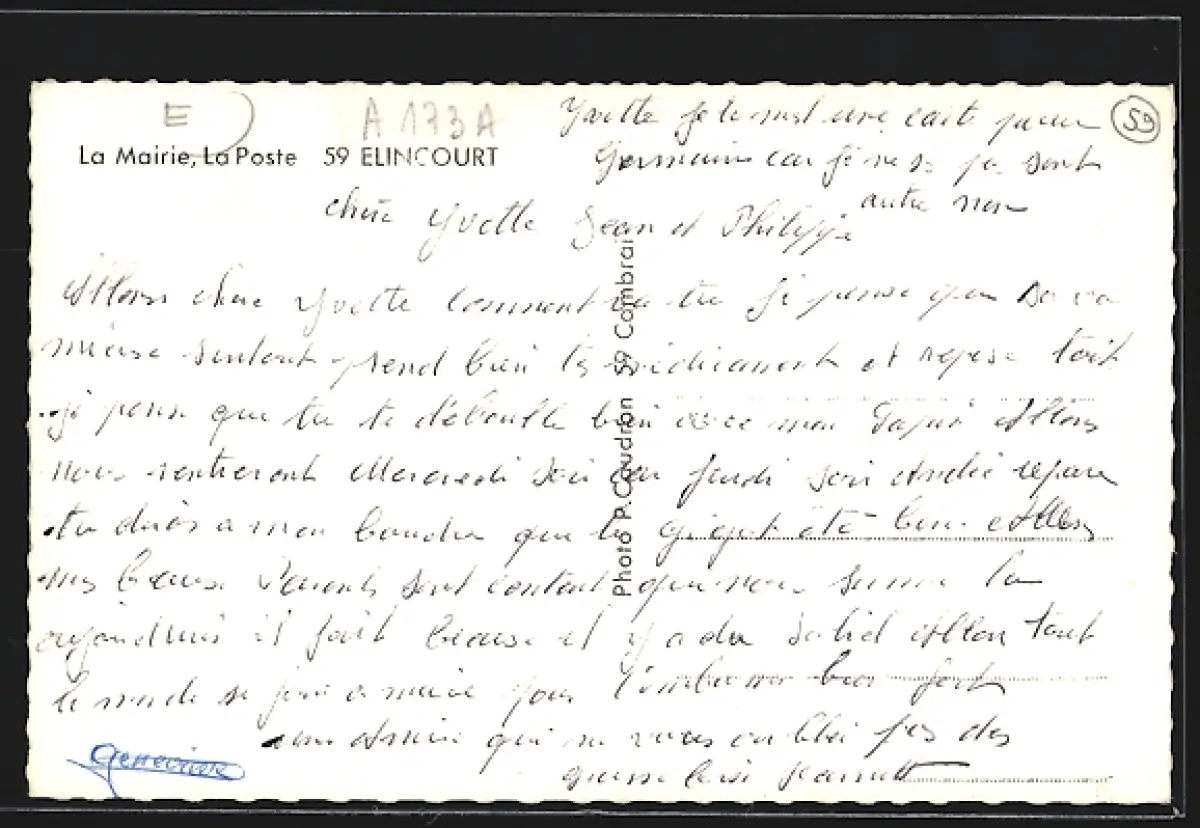 E
A 173A
59
La Mairie, La Poste 59 ELINCOURT
Yvette je te met une carte pour
Germaine car je ne s
autre nom
chère Yvette Jean et Philippe
Allons chère Yvette comment va tu je pense que sa va
mieux surtout prend bien tes médicament et repose toit
je pense que tu te débouille bien avec mon Allons
nous rentreront Mercredi soir car Jeudi soir André repare
tu diras a mon que le gigot été bon Allons
mes beaux Parents sont content que nous somme la
aujourdhuis il fait beaux et y a du Soliel Allon tout
le monde se joins a moie pour embrasser bien fort
une Amie qui ne vous oublie pas des
grosse bise Jeannette
Geneviève
Photo P. Caudron 59 Cambrai